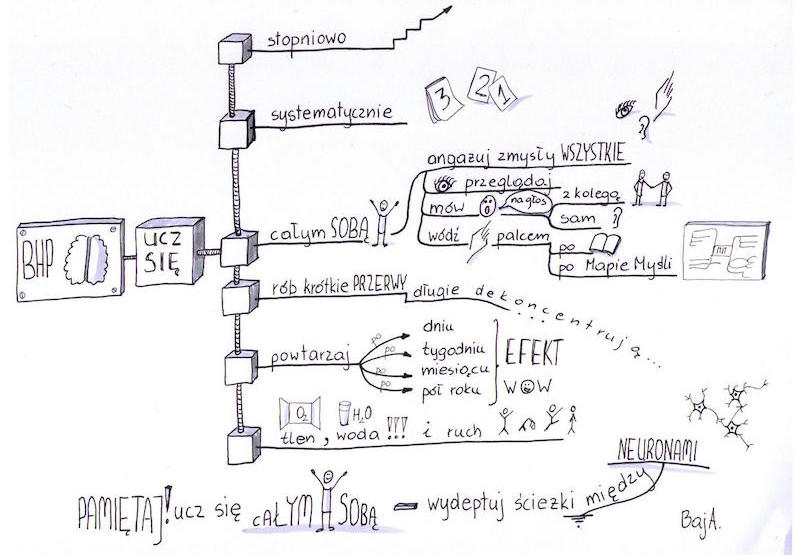 stopniowo
systematycznie
3 2 1
BHP
UCZ
SIĘ
całym SOBĄ
angażuj zmysły WSZYSTKIE
przeglądaj
mów na głos
z kolegą
sam
wódź palcem
po
po Mapie Myśli
rób krótkie PRZERWY długie dekoncentrują...
powtarzaj
po dniu
po tygodniu
po miesiącu
po pół roku
EFEKT
WOW
O2 H2O
tlen, woda!!! i ruch
NEURONAMI
PAMIĘTAJ! ucz się CAŁYM SOBĄ - wydeptuj ścieżki między
BajA.